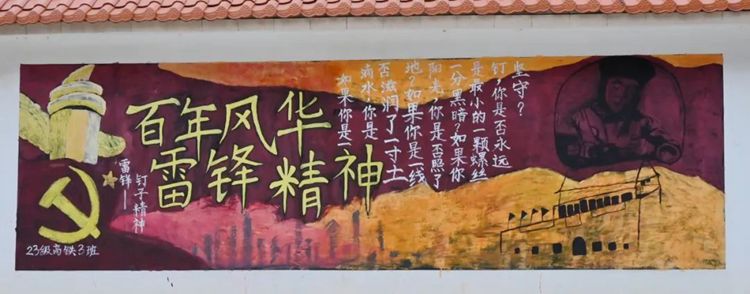 百年风华
雷锋精神
雷锋——
钉子精神
如果你是一
滴水，你是
否滋润了一寸土
地？如果你是一线
阳光，你是否照了
一分黑暗？如果你
是最小的一颗螺丝
钉，你是否永远
坚守？
23级高铁3班